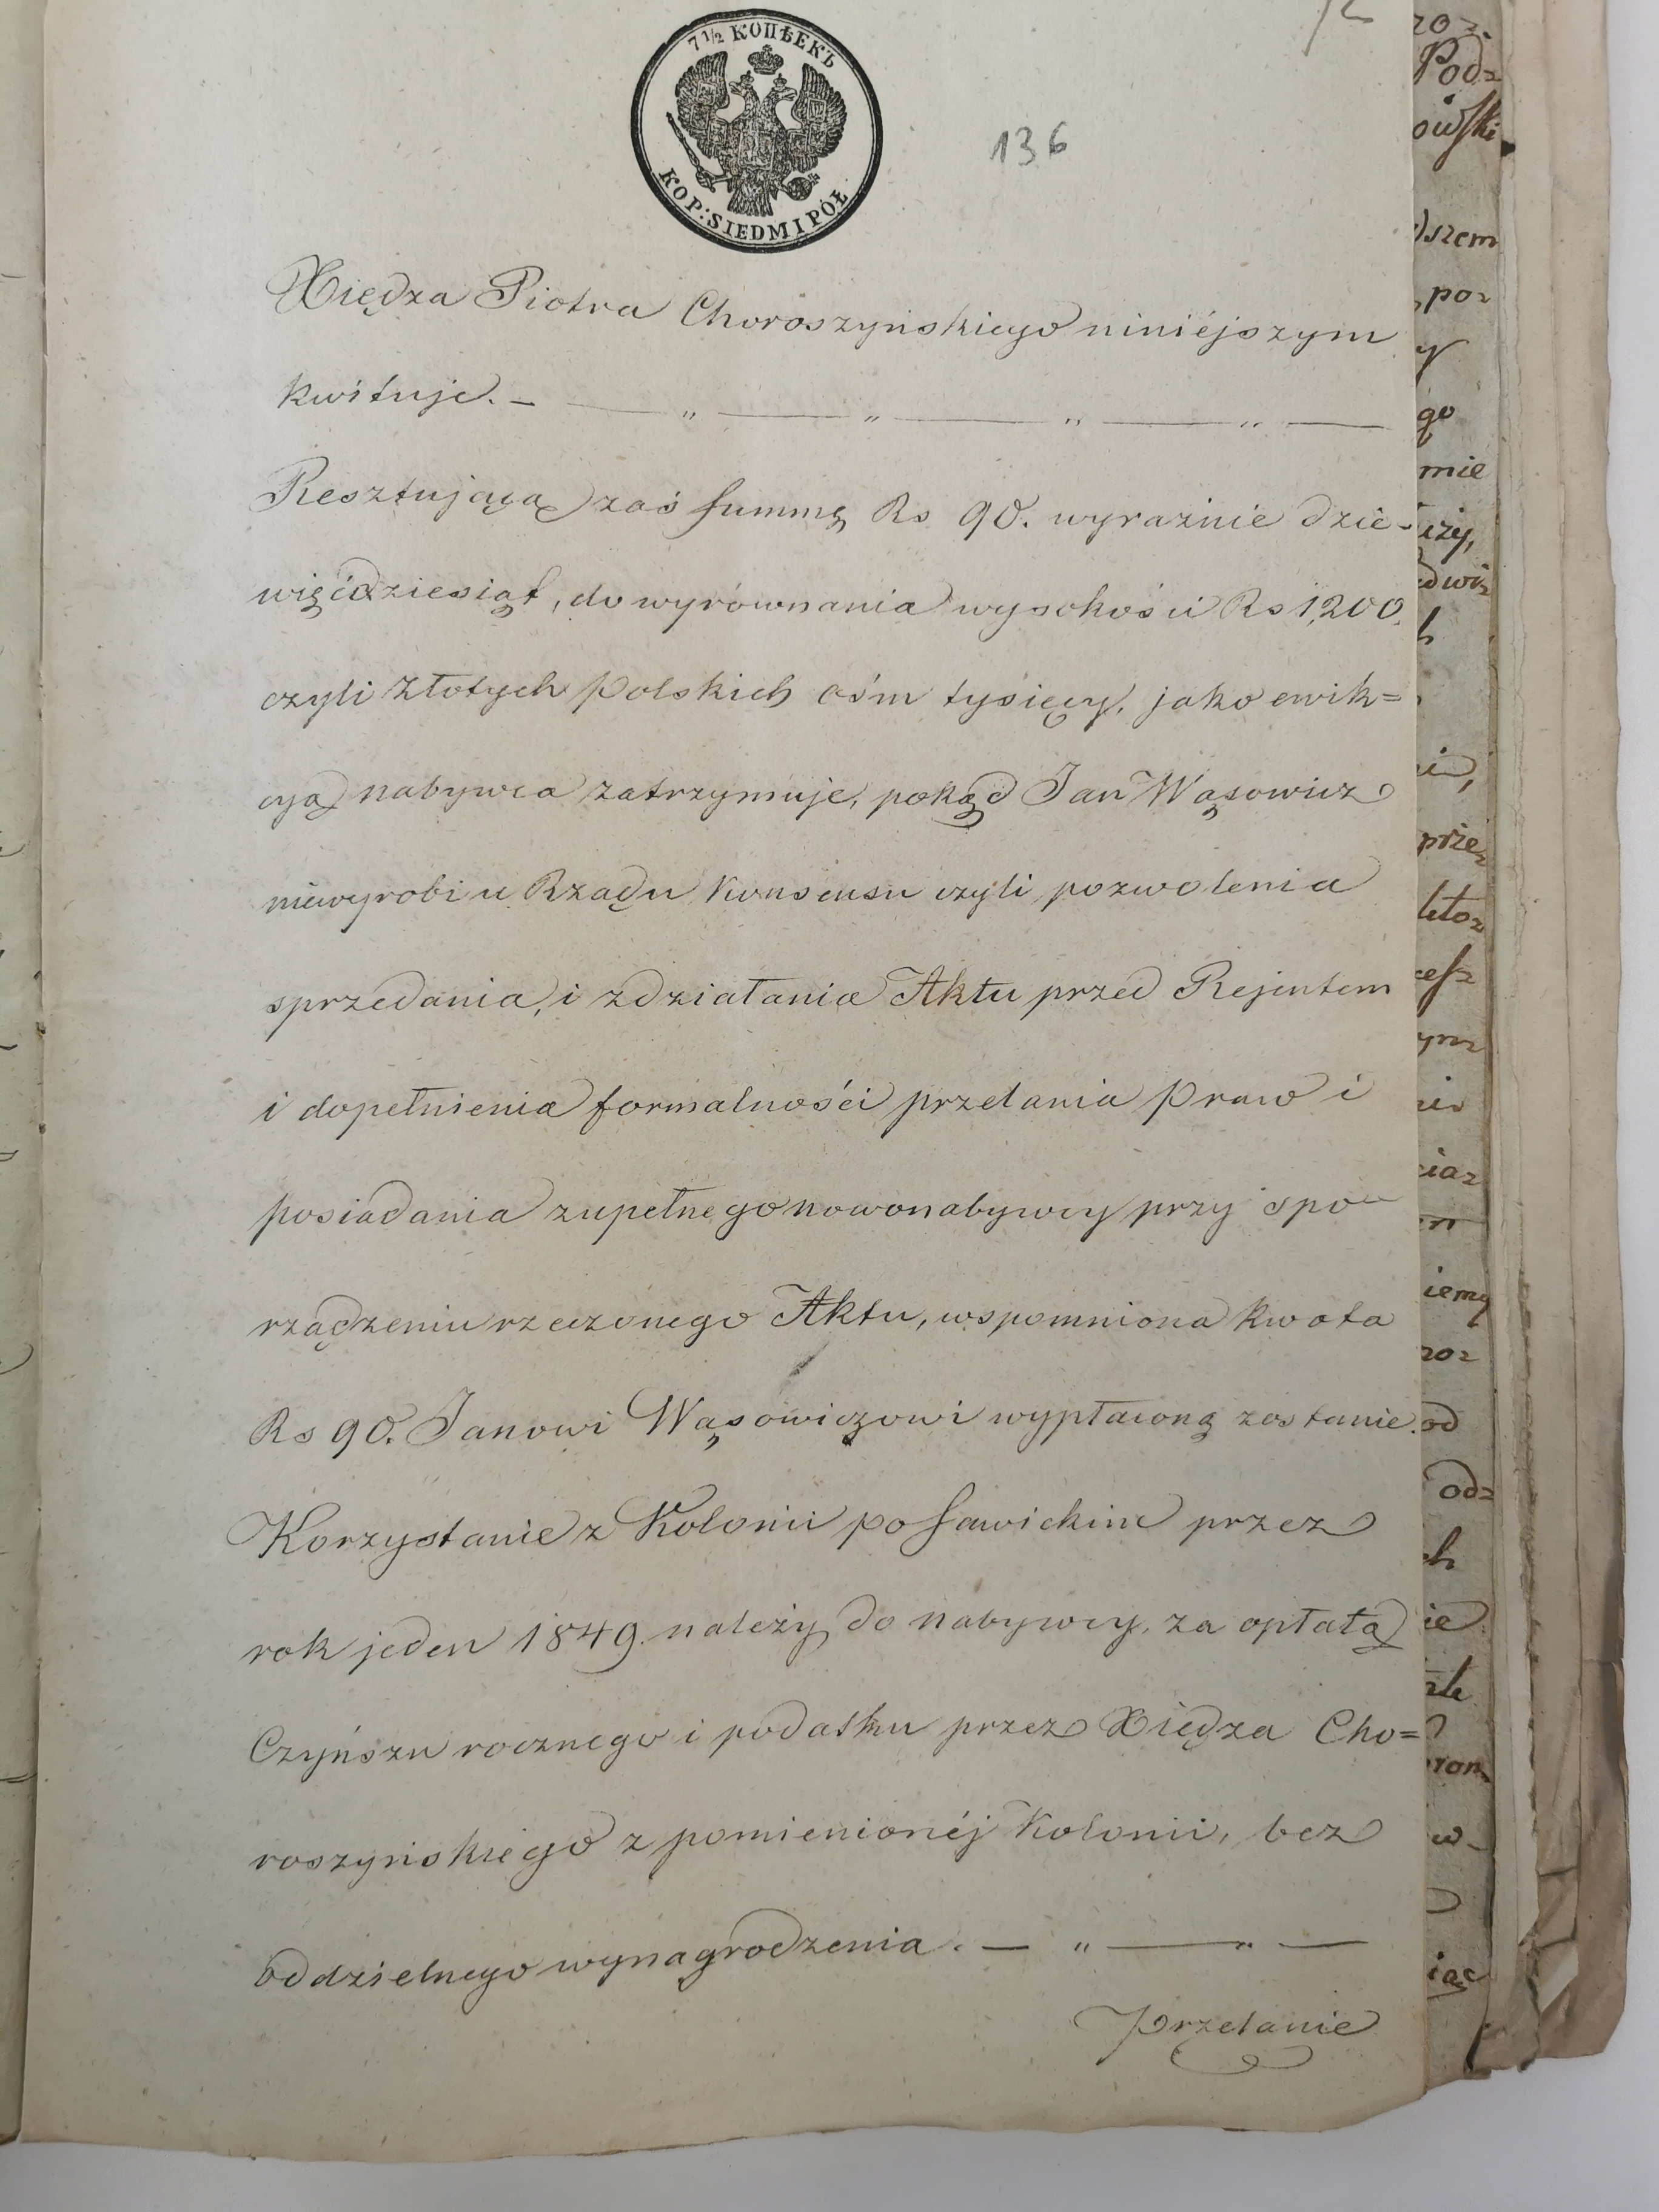 7 1/2 КОПѢЕКЪ
KOP: SIEDMI PÓŁ.
136
Xiędza Piotra Choroszyńskiego niniéjszym
kwituje. — — " — " — " — " —
Resztującą zaś summę Rs 90. wyraźnie dzie-
więćdziesiąt, do wyrównania wysokości Rs 1,200.
czyli Złotych Polskich ośm tysięcy, jako ewik=
cyą nabywca zatrzymuje, pokąd Jan Wąsowicz
niewyrobi u Rządu Konsensu czyli pozwolenia
sprzedania, i zdziałania Aktu przed Rejentem
i dopełnienia formalnośći przelania Praw i
posiadania zupełnego nowonabywcy przy spo-
rządzeniu rzeczonego Aktu, wspomniona kwota
Rs 90. Janowi Wąsowiczowi wypłaconą zostanie.
Korzystanie z Kolonii po Sawickim przez
rok jeden 1849. należy do nabywcy, za opłatą
Czyńszu rocznego i podatku przez Xiędza Cho=
roszyńskiego z pomienionéj Kolonii, bez
oddzielnego wynagrodzenia. — " — " —
Przelanie